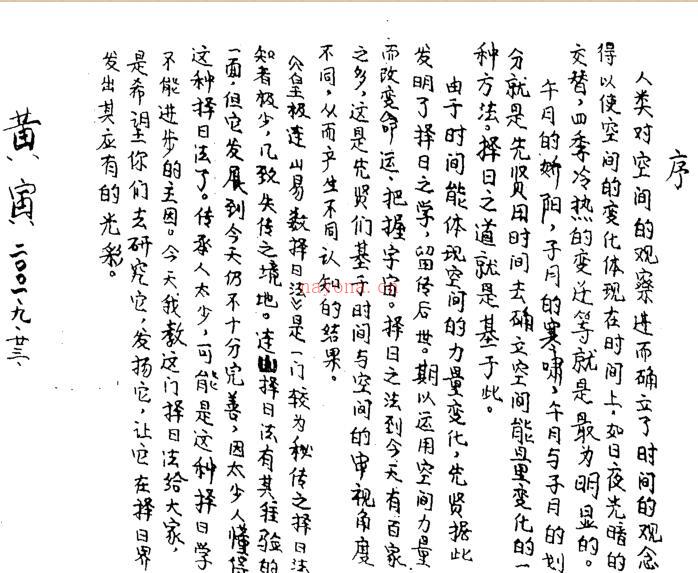 序
人类对空间的观察进而确立了时间的观念
得以使空间的变化体现在时间上。如日夜光暗的
交替，四季冷热的变迁等就是最为明显的。
午月的娇阳，子月的寒啸，午月与子月的划
分就是先贤用时间去确立空间能量变化的一
种方法。择日之道就是基于此。
由于时间能体现空间的力量变化，先贤据此
发明了择日之学，留传后世。期以运用空间力量
而改变命运、把握宇宙。择日之法到今天有百家
之多，这是先贤们基于时间与空间的审视角度
不同，从而产生不同认知的结果。
《皇极连山易数择日法》是一门较为秘传之择日法
知者极少，几致失传之境地。连山择日法有其经验的
一面，但它发展到今天仍不十分完善，因太少人懂得
这种择日法了。传承人太少，可能是这种择日学
不能进步的主因。今天我教这门择日法给大家，
是希望你们去研究它，发扬它，让它在择日界
发出其应有的光彩。
黄寅 二〇〇一九、廿三、
nayona.cn